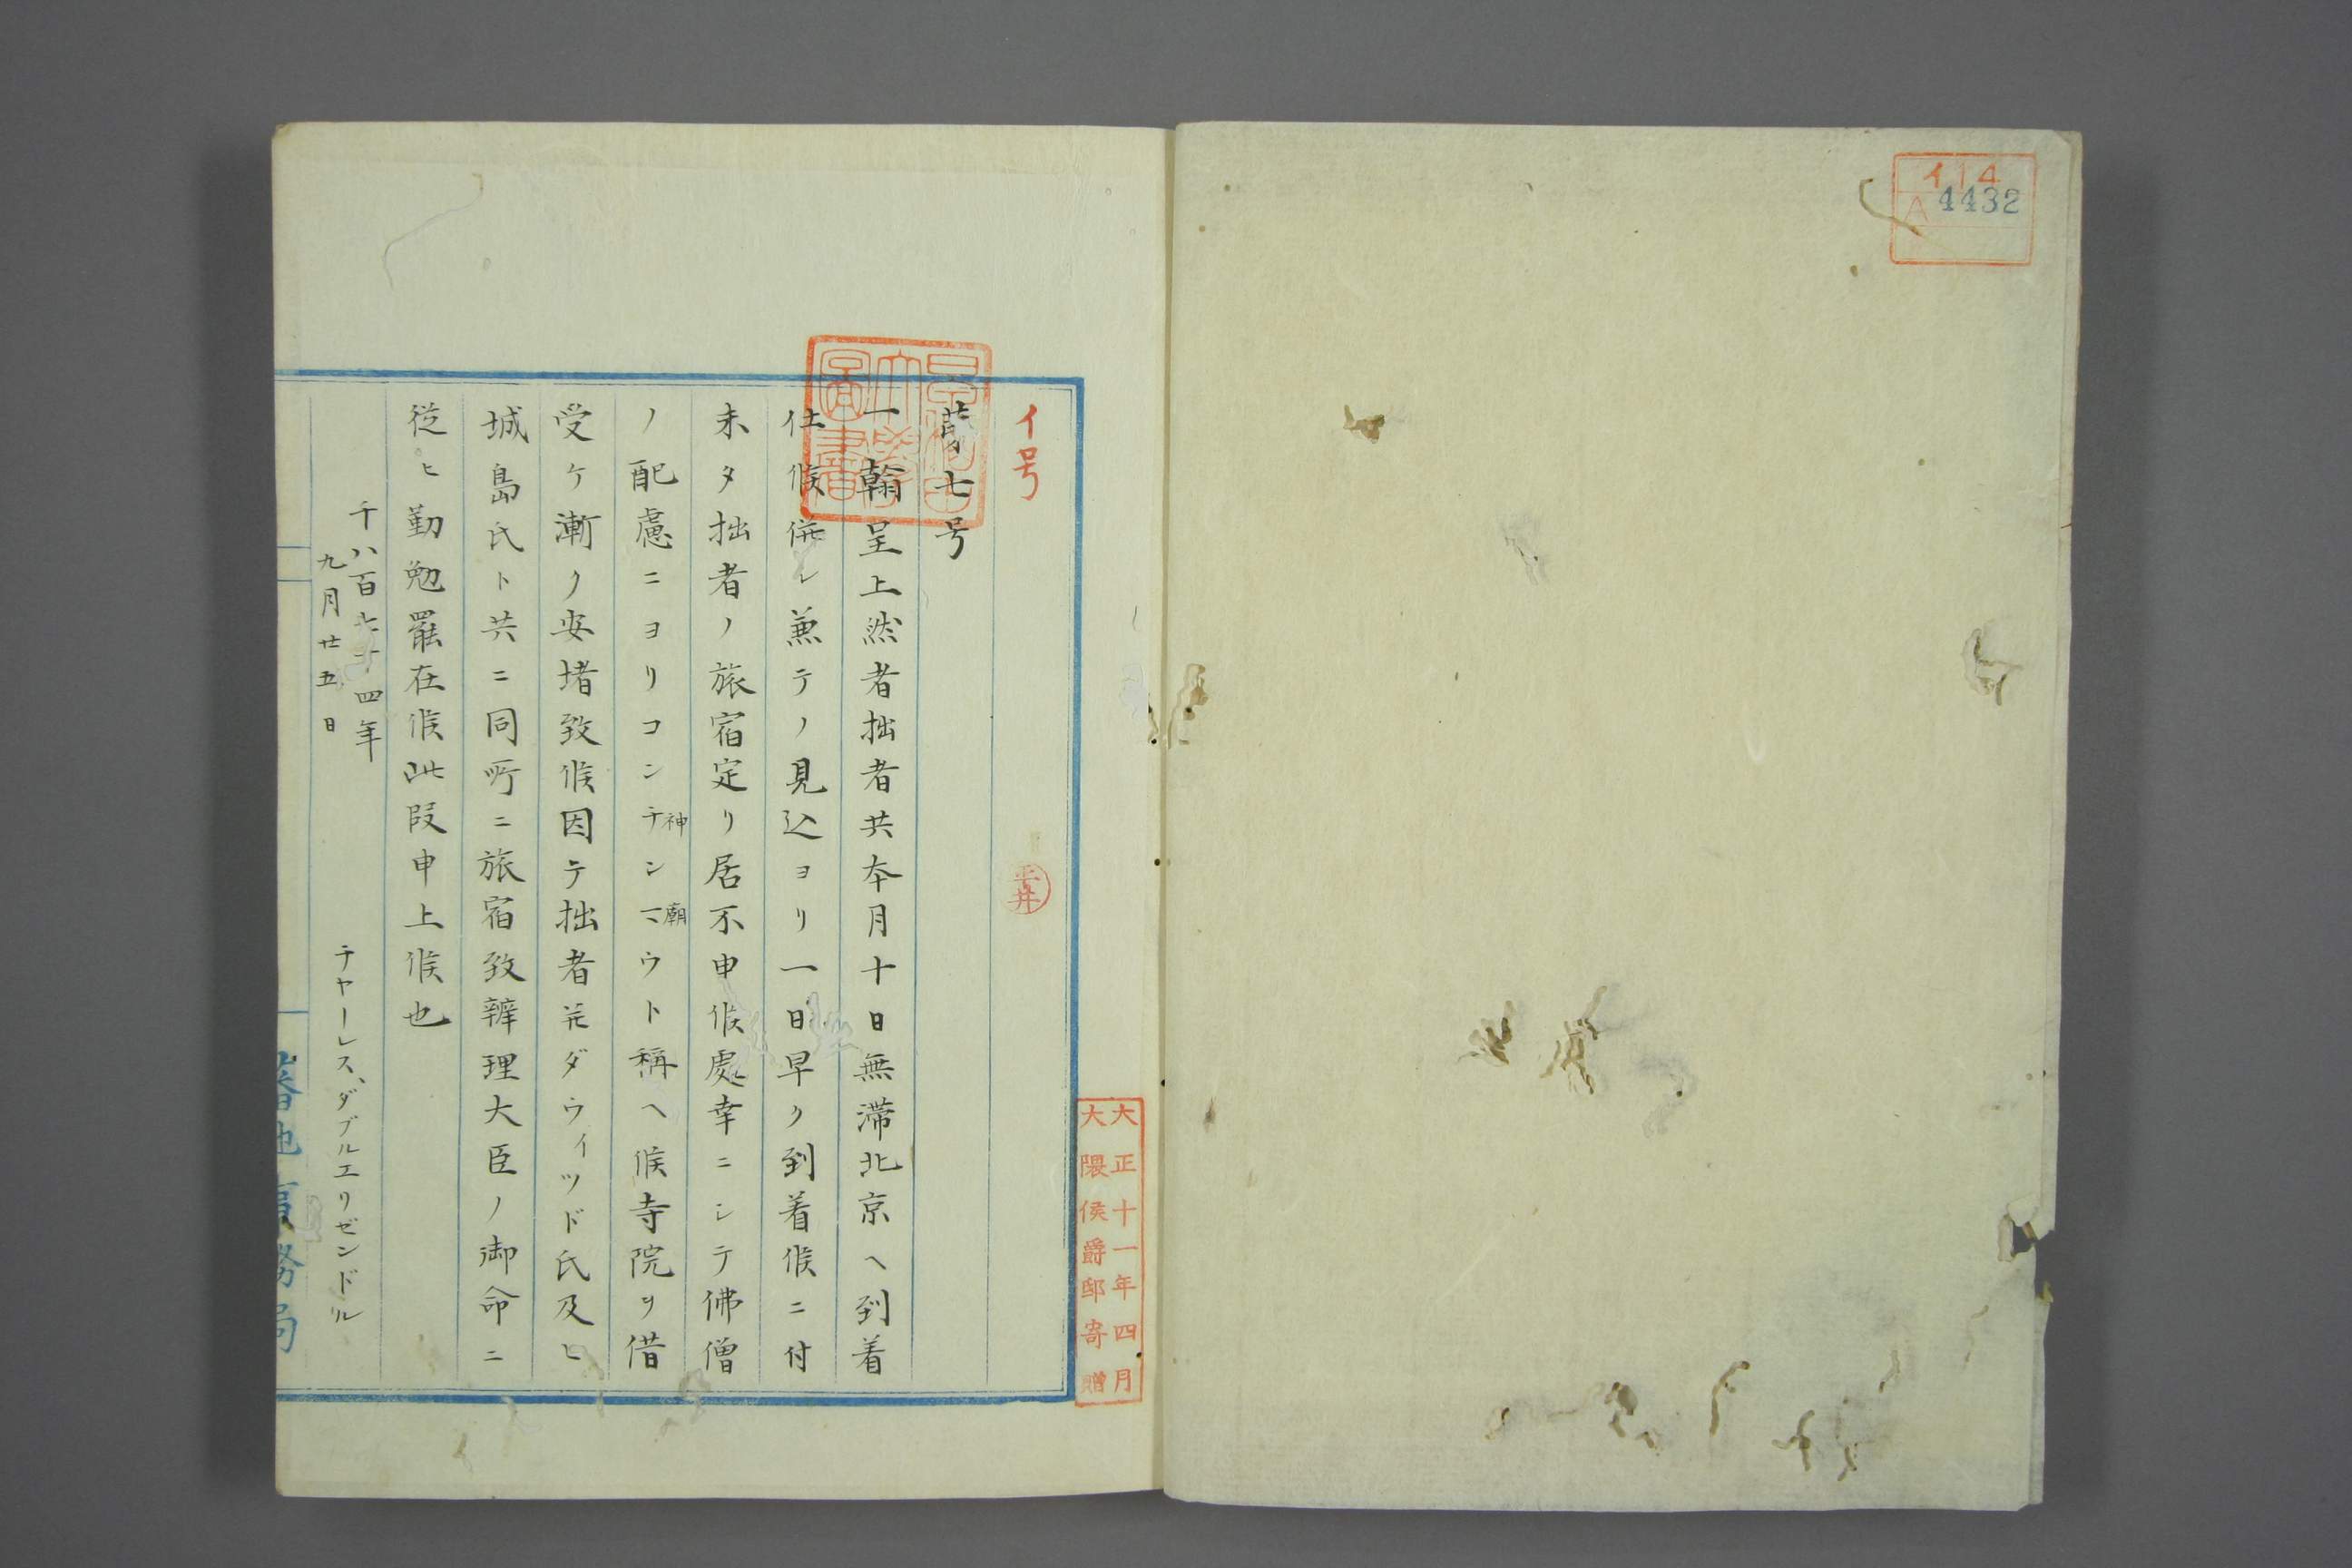 イ14
A 4432
大正十一年四月
大隈侯爵邸寄贈
イ号
平井
第七号
一翰呈上然者拙者共本月十日無滞北京ヘ到着
仕候併シ兼テノ見込ヨリ一日早ク到着候ニ付
未タ拙者ノ旅宿定リ居不申候處幸ニシテ佛僧
ノ配慮ニヨリコンチンマウト稱ヘ候寺院ヲ借
神廟
受ケ漸ク安堵致候因テ拙者並ダウィツド氏及ヒ
城島氏ト共ニ同所ニ旅宿致辨理大臣ノ御命ニ
従ヒ勤勉罷在候此段申上候也
千八百七十四年
九月廿五日
チヤーレス、ダブルエリゼンドル
蕃地事務局